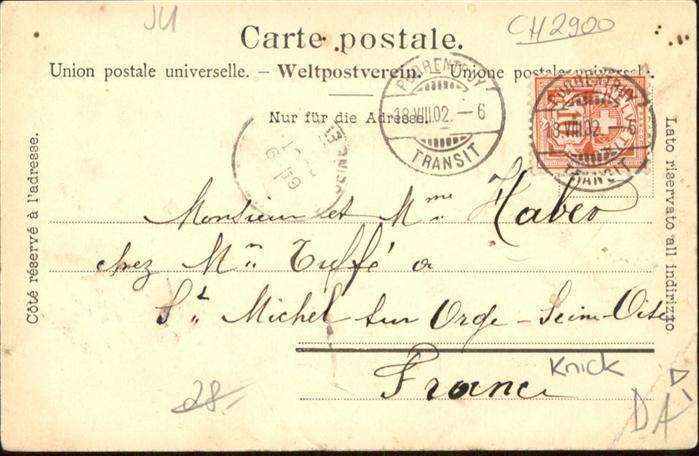 JU
CH2900
Carte postale.
Union postale universelle. – Weltpostverein. Unione postale universale.
Nur für die Adresse.
PORRENTRUY
18.VIII.02. – 6
TRANSIT
PORRENTRUY
18.VIII.02. – 6
TRANSIT
Côté réservé à l'adresse.
Lato riservato all indirizzo
Monsieur et Mme Haber
chez Mm Tuffé a
St Michel sur Orge - Seine-Oise
France
Knick
28.-
DA